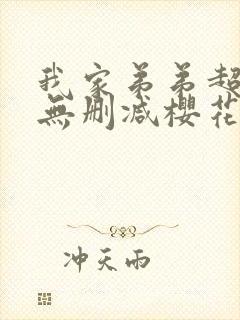 我家弟弟超
無删减櫻花
冲天雨